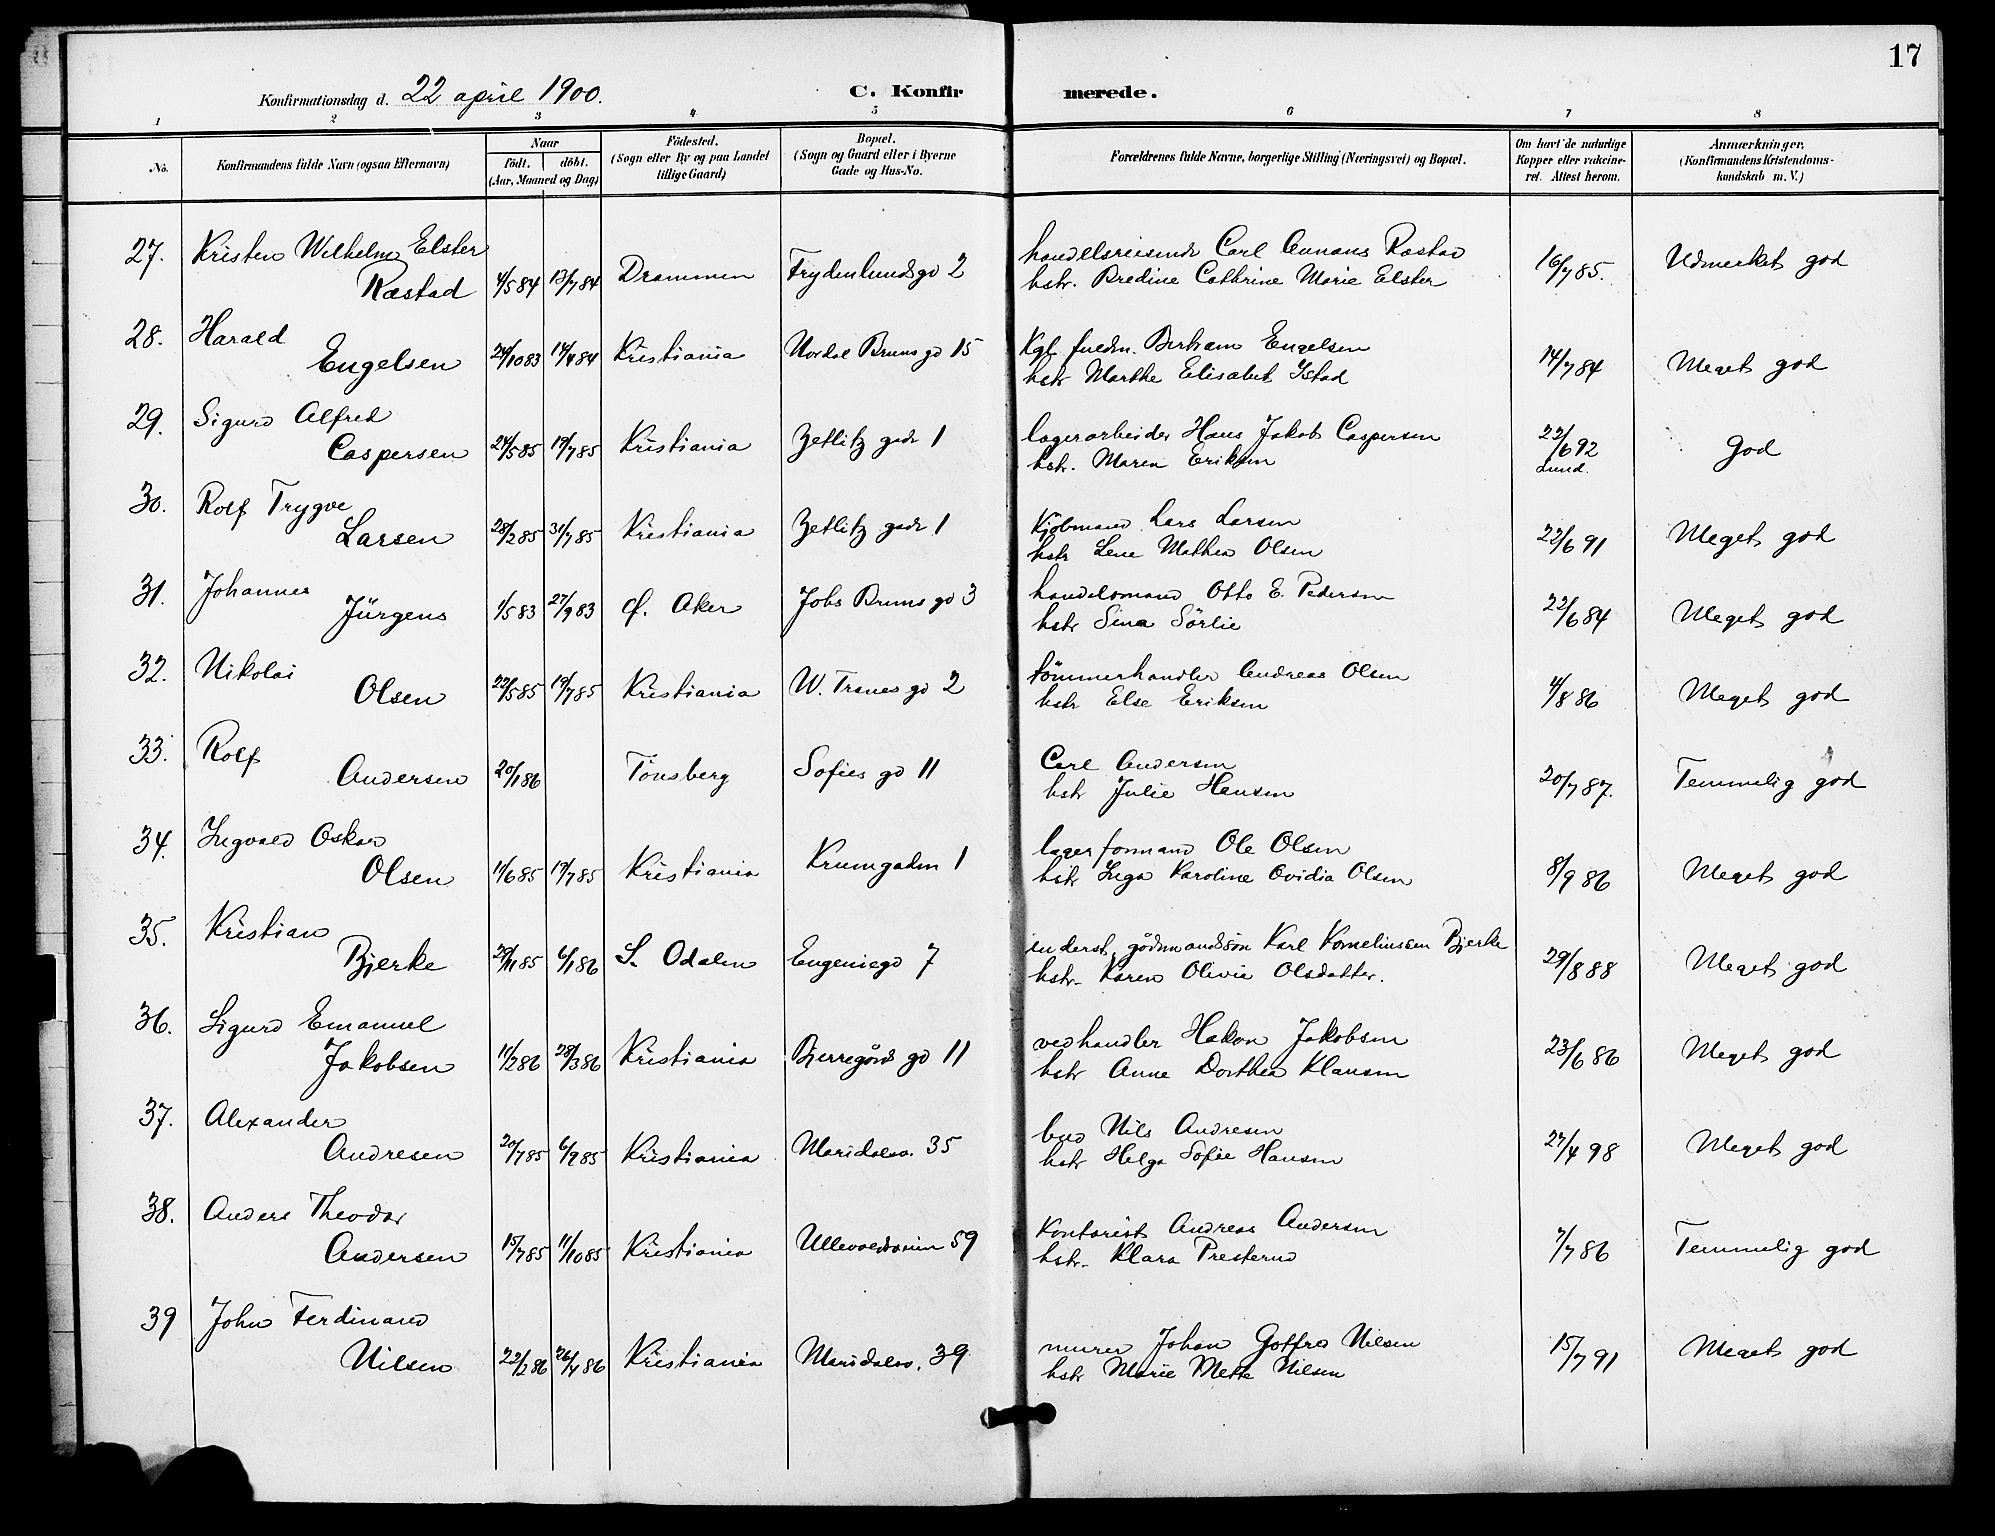 17
Konfirmationsdag d. 22 april 1900. C. Konfirmerede.
1 2 3 4 5 6 7 8
No. Konfirmandens fulde Navn (ogsaa Efternavn) Naar födt. döbt. (Aar, Maaned og Dag) Födested. (Sogn eller By og paa Landet tillige Gaard) Bopæl. (Sogn og Gaard eller i Byerne Gade og Hus-No. Forældrenes fulde Navne, borgerlige Stilling (Næringsvei) og Bopæl. Om havt de naturlige Kopper eller vakcineret. Attest herom. Anmærkninger. (Konfirmandens Kristendomskundskab m. V.)
27. Kristen Wilhelm Elster handelsreisende Carl Rastad
Rastad 4/5 84 13/7 84 Drammen Frydenlundsgd 2 hstr. Bredine Cathrine Marie Elster 16/7 85. Udmerket god
28. Harald Kgl. fuldm. Bertram Engelsen
Engelsen 24/10 83 14/4 84 Kristiania Nordal Bruns gd 15 hstr Marthe Elisabet 14/7 84 Meget god
29. Sigurd Alfred lagerarbeider Hans Jakob Caspersen
Caspersen 24/5 85 19/7 85 Kristiania Zetlitz gade 1 hstr. Maren Eriksen 22/6 92 God
Lund.
30. Rolf Trygve Kjöbmand Lars Larsen
Larsen 28/2 85 31/7 85 Kristiania Zetlitz gade 1 hstr Lene Mathea Olsen 22/6 91 Meget god
31. Johannes handelsmand Otto E. Pedersen
Jürgens 1/5 83 27/9 83 Ø. Aker Johs Bruns gd 3 hstr Sina Sörlie 22/6 84 Meget god
32. Nikolai tömmerhandler Andreas Olsen
Olsen 22/5 85 19/7 85 Kristiania W. Tranes gd 2 hstr Else Eriksen 4/8 86 Meget god
33. Rolf Carl Andersen
Andersen 20/1 86 Tönsberg Sofies gd 11 hstr Julie Hansen 20/7 87. Temmelig god
34. Ingvald Oskar lagerformand Ole Olsen
Olsen 11/6 85 19/7 85 Kristiania Krumgaden 1 hstr Inga Karoline Ovidia Olsen 8/9 86 Meget god
35. Kristian inderst, gådmandssön Karl Kornelinssen Bjerke
Bjerke 29/11 85 6/1 86 S. Odalen Eugeniegd 7 hstr. Karen Olivie Olsdatter. 29/8 88 Meget god
36. Sigurd Emanuel vedhandler Hakon Jakobsen
Jakobsen 11/2 86 28/3 86 Kristiania Bjerregårds gd 11 hstr Anne Dorthea Klausen 23/6 86 Meget god
37. Alexander bud Nils Andresen
Andresen 20/7 85 6/9 85 Kristiania Maridalsv. 35 hstr Helga Sofie Hansen 27/4 98 Meget god
38. Anders Theodor Kontorist Andreas Andersen
Andersen 15/7 85 11/10 85 Kristiania Ullevoldsveien 59 hstr. Klara Presterud 7/7 86 Temmelig god
39 John Ferdinand murer Johan Gotfred Nilsen
Nilsen 22/2 86 26/4 86 Kristiania Maridalsv. 39 hstr Marie Mette Nilsen 15/7 91 Meget god